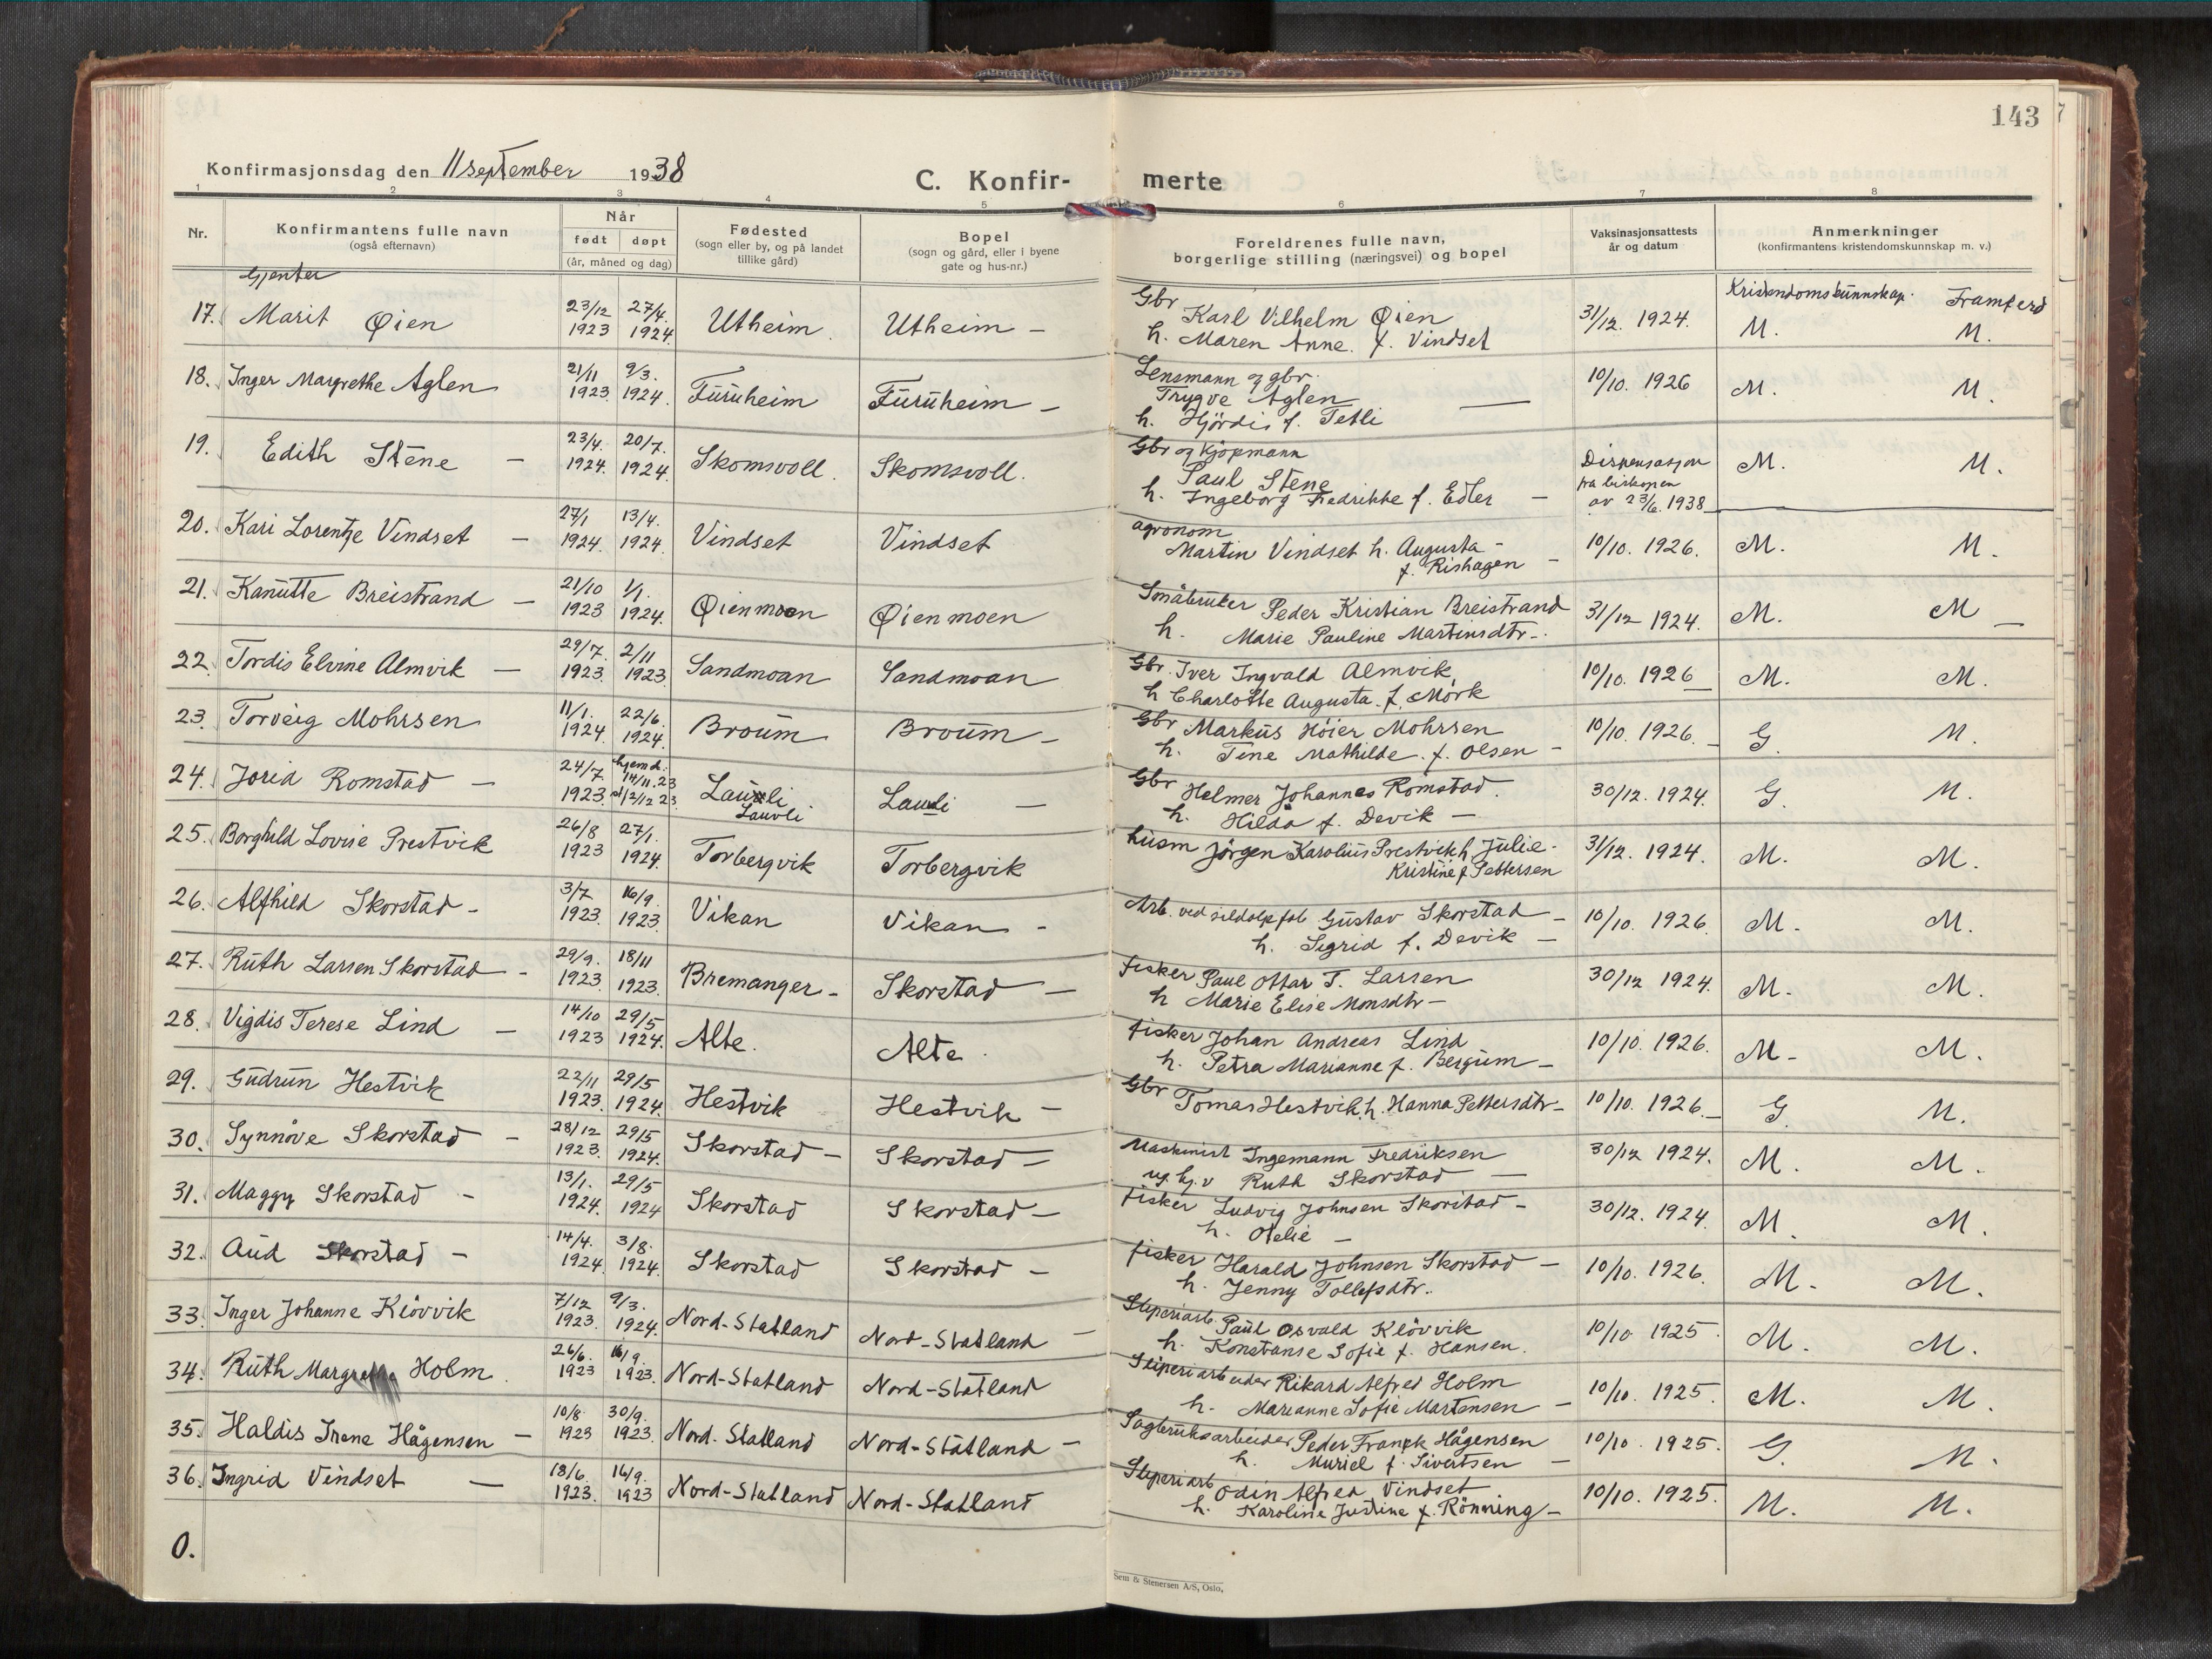 143
Konfirmasjonsdag den 11 september 1938
C. Konfir- merte
1 2 3 4 5 6 7 8
Nr. Konfirmantens fulle navn (også efternavn) Når født døpt (år, måned og dag) Fødested (sogn eller by, og på landet tillike gård) Bopel (sogn og gård, eller i byene gate og hus-nr.) Foreldrenes fulle navn, borgerlige stilling (næringsvei) og bopel Vaksinasjonsattests år og datum Anmerkninger (konfirmantens kristendomskunnskap m. v.)
Gjenter
Kristendomskunnskap. Framferd
17. Marit Øien 23/12 1923 27/4. 1924. Utheim. Utheim – Gbr Karl Vilhelm Øien 31/12. 1924. M. M.
h. Maren Anne. f. Vindset
18. Inger Margrethe Aglen 21/11 1923. 9/3. 1924. Furuheim Furuheim – Lensmann og gbr. 10/10. 1926 M. M.
Trygve Aglen —
h. Hjördis f. Tetli
19. Edith Stene – 23/4. 1924. 20/7. 1924. Skomsvoll. Skomsvoll. Gbr og kjöpmann Dispensasjon M. M.
Paul Stene fra biskopen
h. Ingeborg Fredrikke f. Edler – av 23/6. 1938
20. Kari Lorentze Vindset – 27/1 1924. 13/4. 1924. Vindset Vindset agronom 10/10. 1926. M. M.
Martin Vindset h. Augusta –
f. Rishagen –
21. Kanutte Breistrand – 21/10 1923 1/1. 1924. Øienmoen Øienmoen Småbruker Peder Kristian Breistrand 31/12 1924. M. M –
h. Marie Pauline Martinsdtr –.
22. Tordis Elvine Almvik – 29/7. 1923. 2/11 1923. Sandmoan Sandmoan Gbr. Iver Ingvald Almvik 10/10. 1926 M. M.
h Charlotte Augusta. f. Mörk
23. Torveig Mohrsen 11/1. 1924. 22/6. 1924. Broum Broum – Gbr Markus Höier Mohrsen 10/10. 1926. – G. M.
h. Tine Mathilde. f. Olsen –
24. Jorid Romstad – 24/7 1923. hjemd. 14/11.23 st/2/12 23. Lauvli. Lauvli Lauvli – Gbr Helmer Johannes Romstad. 30/12. 1924. G. M.
h. Hilda f. Devik –
25. Borghild Lovise Prestvik 26/8 1923 27/1. 1924. Torbergvik Torbergvik husm Jörgen Karolius Prestvik h. Julie – 31/12. 1924. M. M.
Kristine f. Pettersen
26. Alfhild Skorstad – 3/7 1923. 16/9. 1923. Vikan Vikan – Arb. ved sildoljefab. Gustav Skorstad – 10/10. 1926. M. M.
h. Sigrid f. Devik –
27. Ruth Larsen Skorstad – 29/9. 1923. 18/11 1923. Bremanger – Skorstad – fisker Paul Ottar T. Larsen 30/12 1924. M. M.
h Marie Elise Monsdtr –
28. Vigdis Terese Lind – 14/10 1923 29/5 1924. Alte. Alte. fisker Johan Andreas Lind 10/10. 1926. M – M.
h. Petra Marianne f. Bergum –
29. Gudrun Hestvik 22/11 1923. 29/5 1924. Hestvik Hestvik – Gbr Tomas Hestvik. h. Hanna Pettersdtr – 10/10. 1926. – G. M.
30. Synnöve Skorstad – 28/12 1923. 29/5 1924. Skorstad – Skorstad – Maskinist Ingemann Fredriksen 30/12 1924. M. M.
ug. hj. v Ruth Skorstad –
31. Maggy Skorstad – 13/1. 1924. 29/5 1924 Skorstad Skorstad – fisker Ludvig Johnsen Skorstad – 30/12. 1924. M. M.
h. Otelie –
32. Aud Skorstad – 14/4. 1924. 3/8. 1924. Skorstad Skorstad – fisker Harald Johnsen Skorstad – 10/10. 1926. M. M.
h. Jenny Tollefsdtr.
33. Inger Johanne Klövvik 7/12 1923. 9/3. 1924. Nord-Statland Nord-Statland – Sliperiarb. Paul Osvald Klövvik 10/10 1925. M. M.
h. Konstanse Sofie f. Hansen.
34. Ruth Margrethe Holm. 26/6. 1923 16/9. 1923. Nord-Statland Nord-Statland Sliperiarbeider Rikard Alfred Holm 10/10. 1925. M. M.
h. Marianne Sofie Martensen –
35. Haldis Irene Hågensen – 10/8 1923 30/9. 1923. Nord-Statland Nord-Statland – Sagbruksarbeider Peder Franck Hågensen 10/10. 1925. G. M.
h. Muriel f. Sivertsen –
36. Ingrid Vindset – 18/6. 1923. 16/9. 1923 Nord-Statland Nord-Statland Sliperiarb Odin Alfred Vindset 10/10. 1925. M. M.
h. Karoline Justine f. Rönning –
0.
Sem & Stenersen A/S, Oslo.